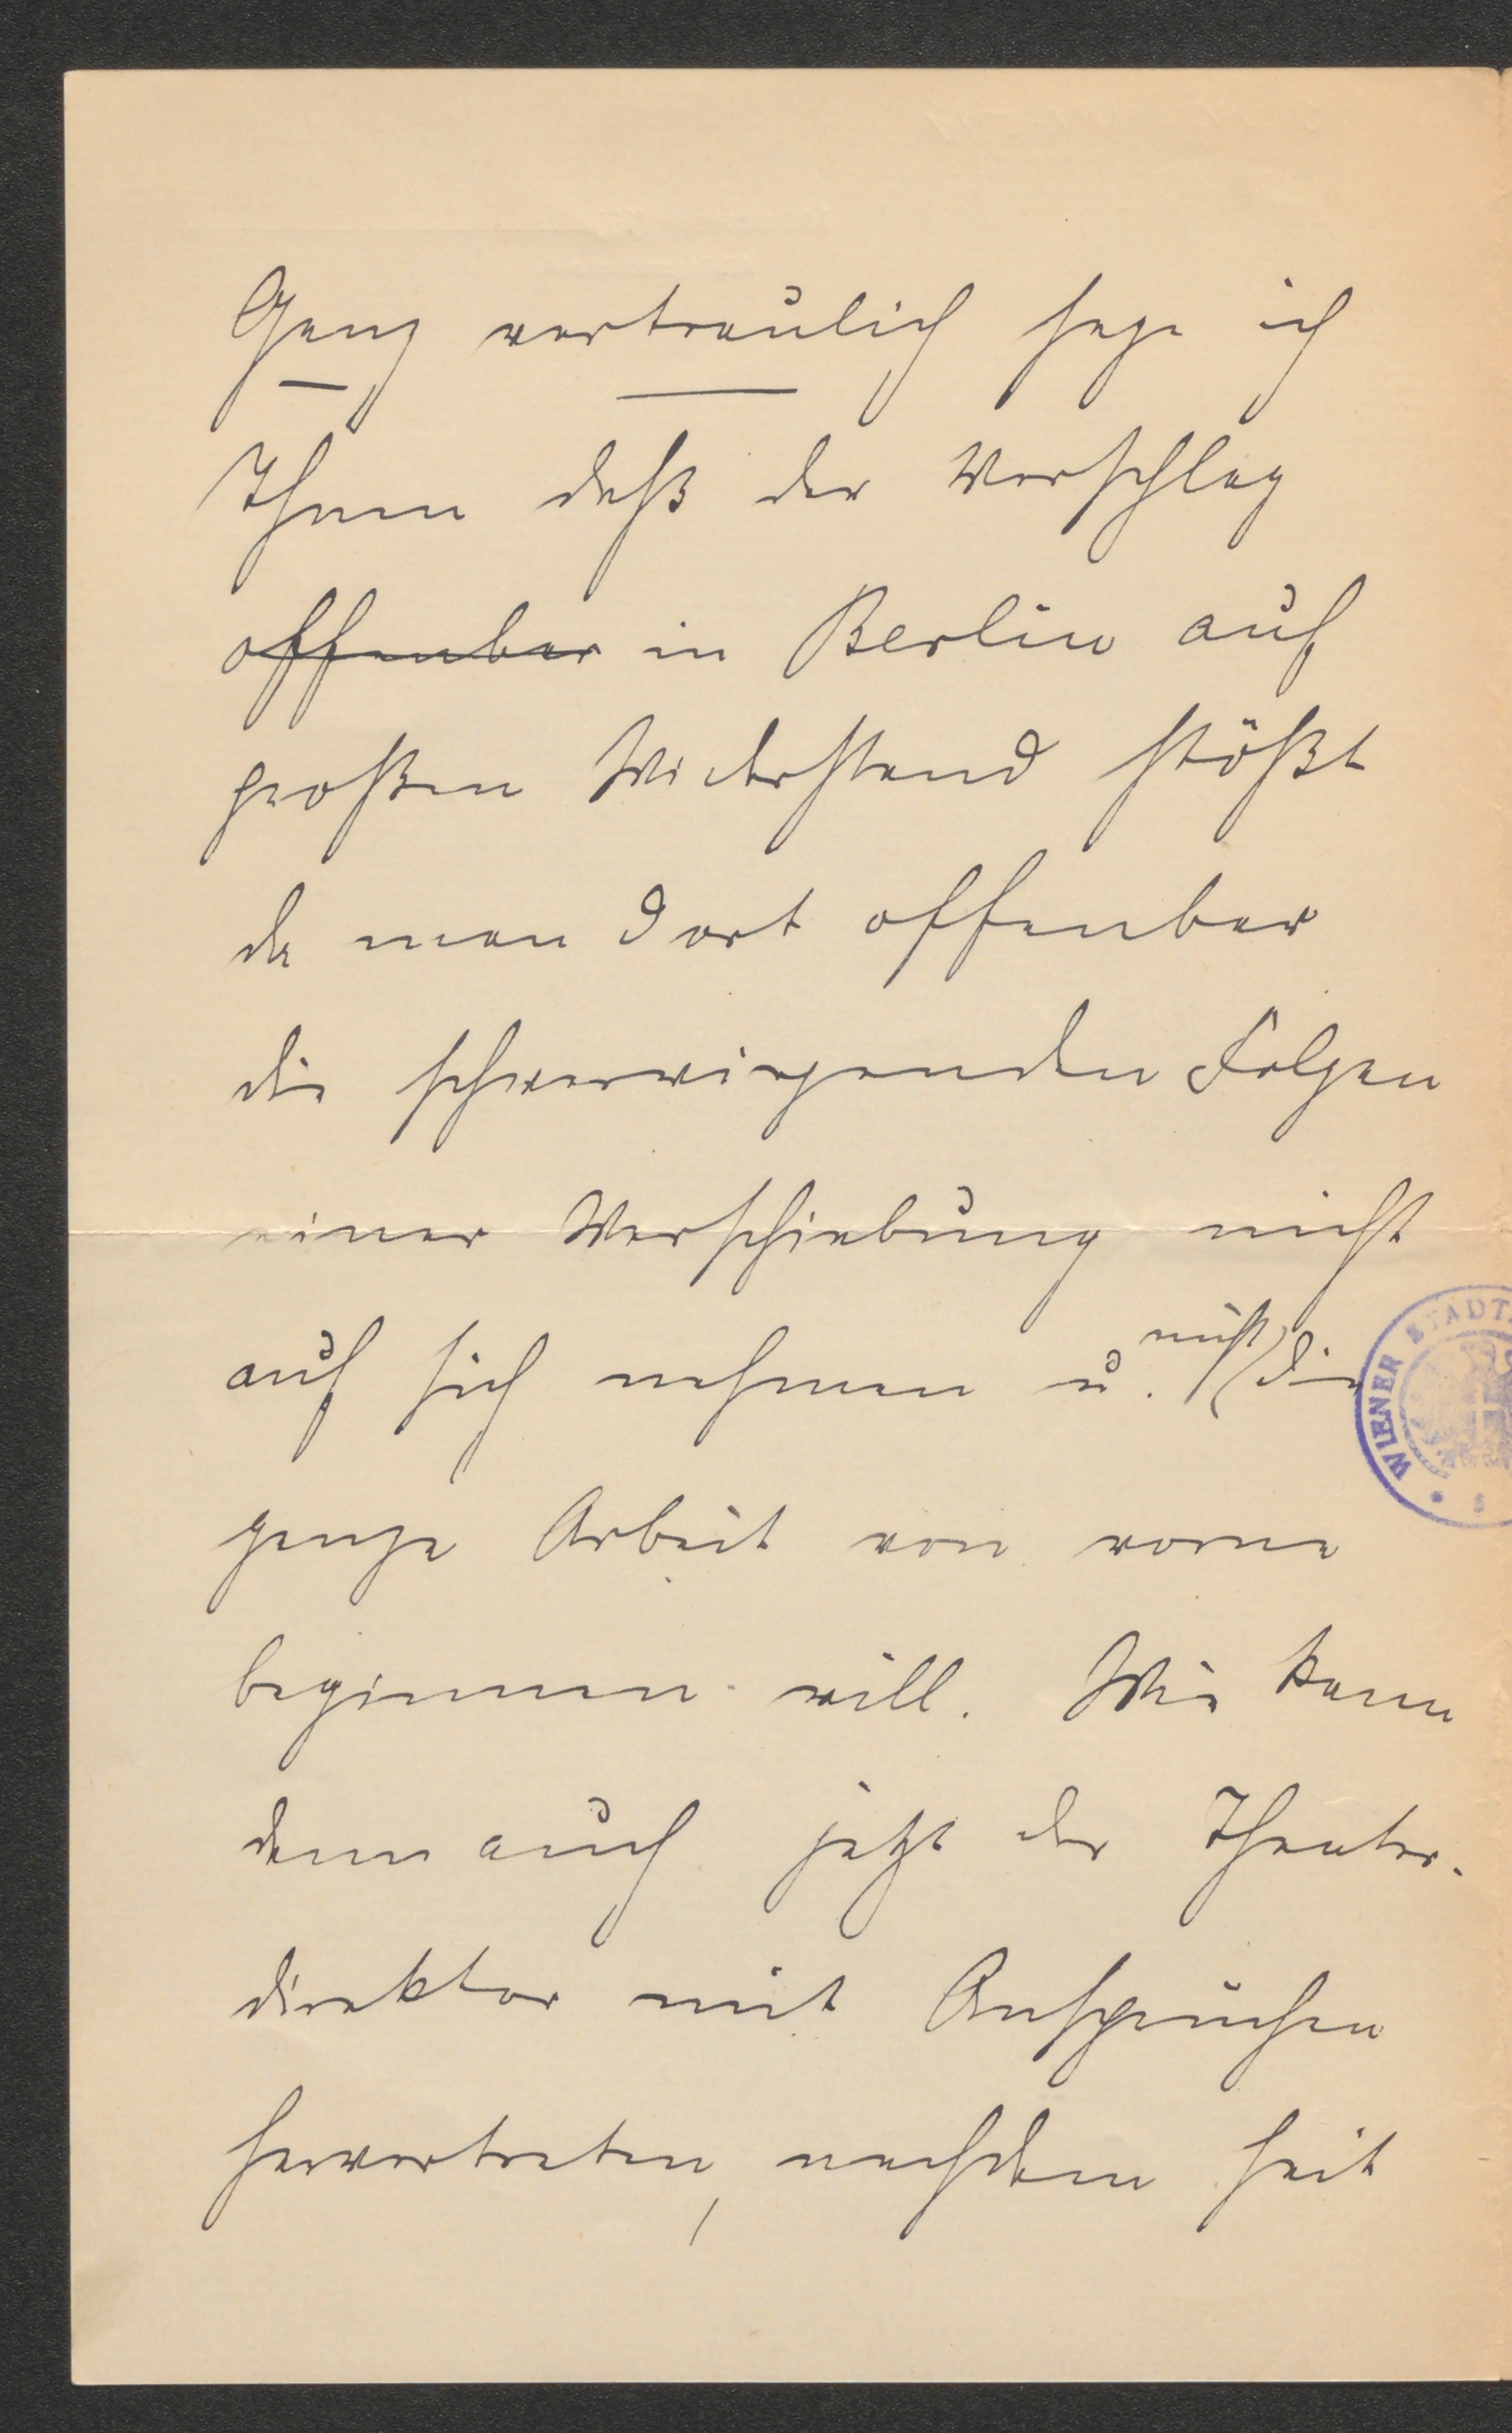 Ganz vertraulich sage ich
Ihnen daß der Vorschlag
offenbar in Berlin auf
großen Widerstand stößt
da man dort offenbar
die schwerwiegenden Folgen
einer Verschiebung nicht
auf sich nehmen u. nicht die
ganze Arbeit von vorne
beginnen will. Wie kann
denn auch jetzt der Theater-
direktor mit Ansprüchen
hervortreten, nachdem seit
WIENER STADT